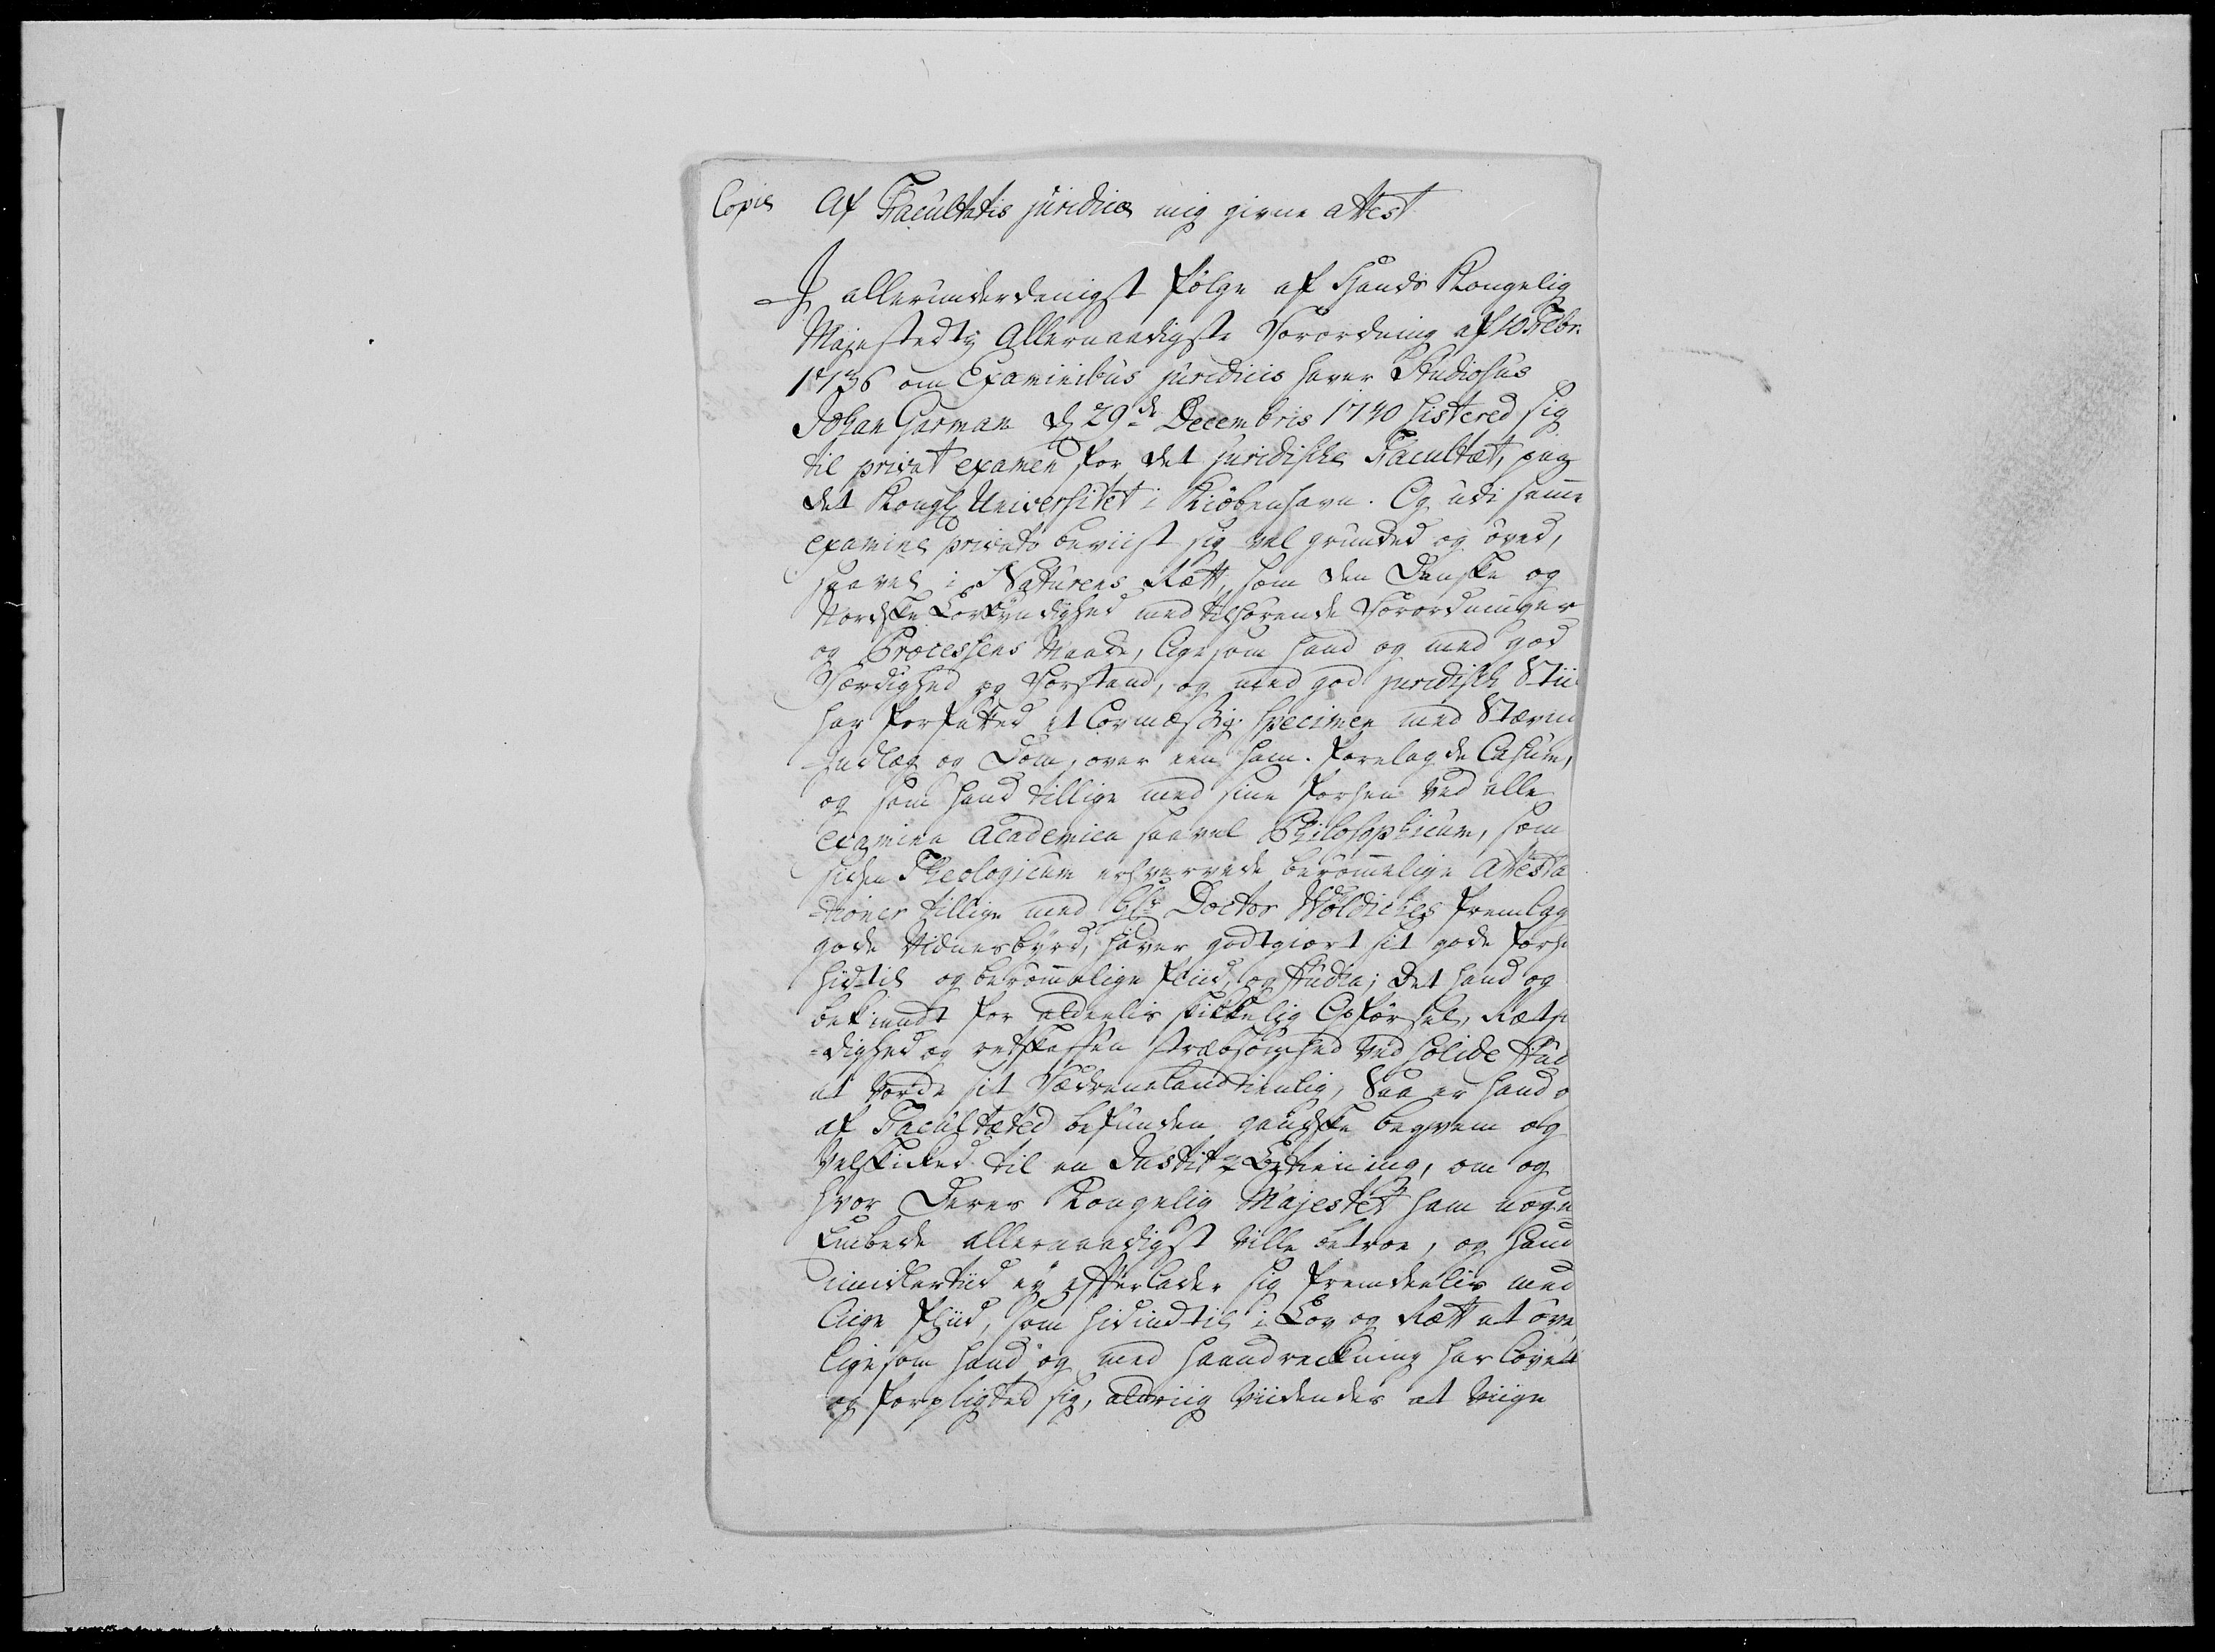 Copie Af Facultatis juridicæ mig givne attest
I allerunderdanigst følge af Hands Kongelig
Majestedtz Allernaadigste Forordning af 10 Febr.
1736 om Examinibus juridicis haver Studiosus
Johan Garman d 29de Decembris 1740 sistered sig
til privat examen for det juridiske Facultæt, paa
det Kongl Universitet i Kiöbenhavn. Og udi samme
examine privato beviist sig vel grunded og øved,
saavel i Naturens Rætt, som den Danske og
Nordske Lovkyndighed med tilhørende Forordninger
og Processens Maade, ligesom hand og med god
Færdighed og Forstand, og med god juridisk Stiil
har forfatted et Lovmæssig specimen med Stævni
Indlæg og Dom, over een ham forelagde Casum,
og som hand tillige med sine forhen ved alle
examina academica saavel Philosophicum, som
siden Theologicum erhvervede berømmelige attesta
-tioner tillige med Hr Doctor Wöldickes fremlag
gode Vidnesbyrd, haver godtgiort sit gode forh
hidtil og berømmelige fliid, og studia; det hand og
bekiendt for aldeelis skikkelig Opførsel, Rætf
=dighed og retskaffen stræbsomhed ved solide Stud
at vorde sit Fædreneland tienlig, Saa er hand o
af Facultæted befunden gandske beqvem og
velskicked til en Justitz Betiening, om og
hvor Deres Kongelig Majestet ham nogen
Embede allernaadigst ville betroe, og hand
imidlertiid ey efterlader sig fremdeelis med
liige fliid, som hidindtil i Lov og Rætt at øve
ligesom hand og med haandreckning har lovet
og forpligted sig, aldriig viidendes at viige